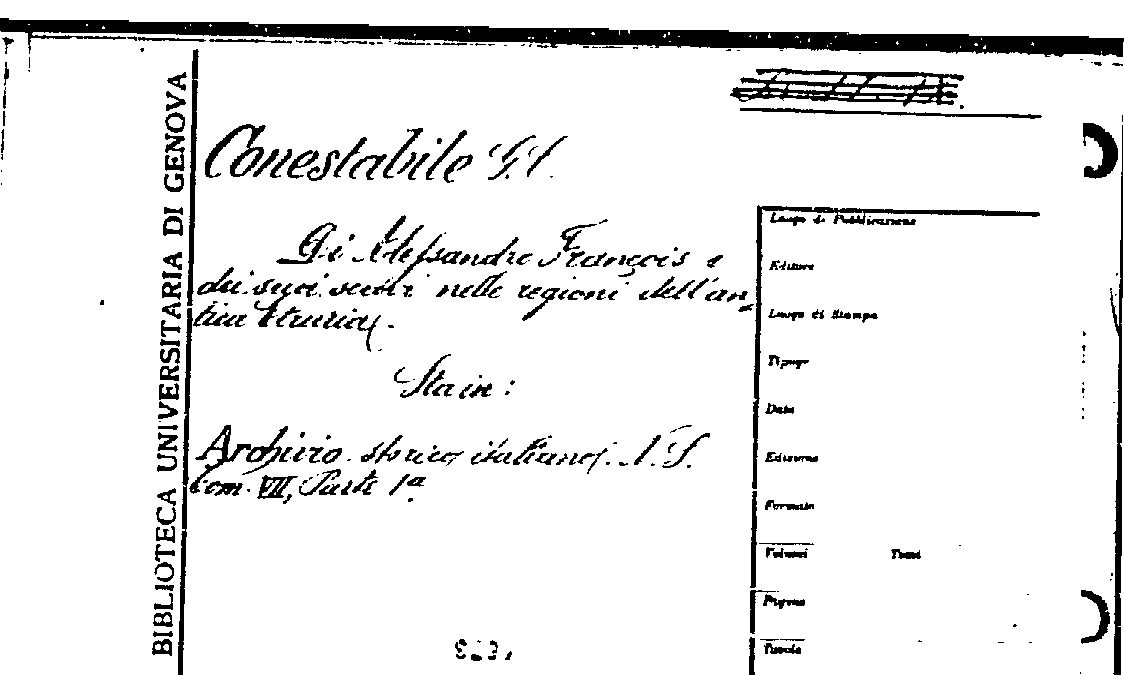 BIBLIOTECA UNIVERSITARIA DI GENOVA
Conestabile G. C.
Di Alessandro François e
dei suoi scavi nelle regioni dell'an-
tica Etruria.
Sta in:
Archivio storico italiano. N. S.
tom. VII, Parte 1ª
Luogo di Pubblicazione
Editore
Luogo di Stampa
Tipogr
Data
Edizione
Formato
Volumi Tomi
Pagine
Tavole